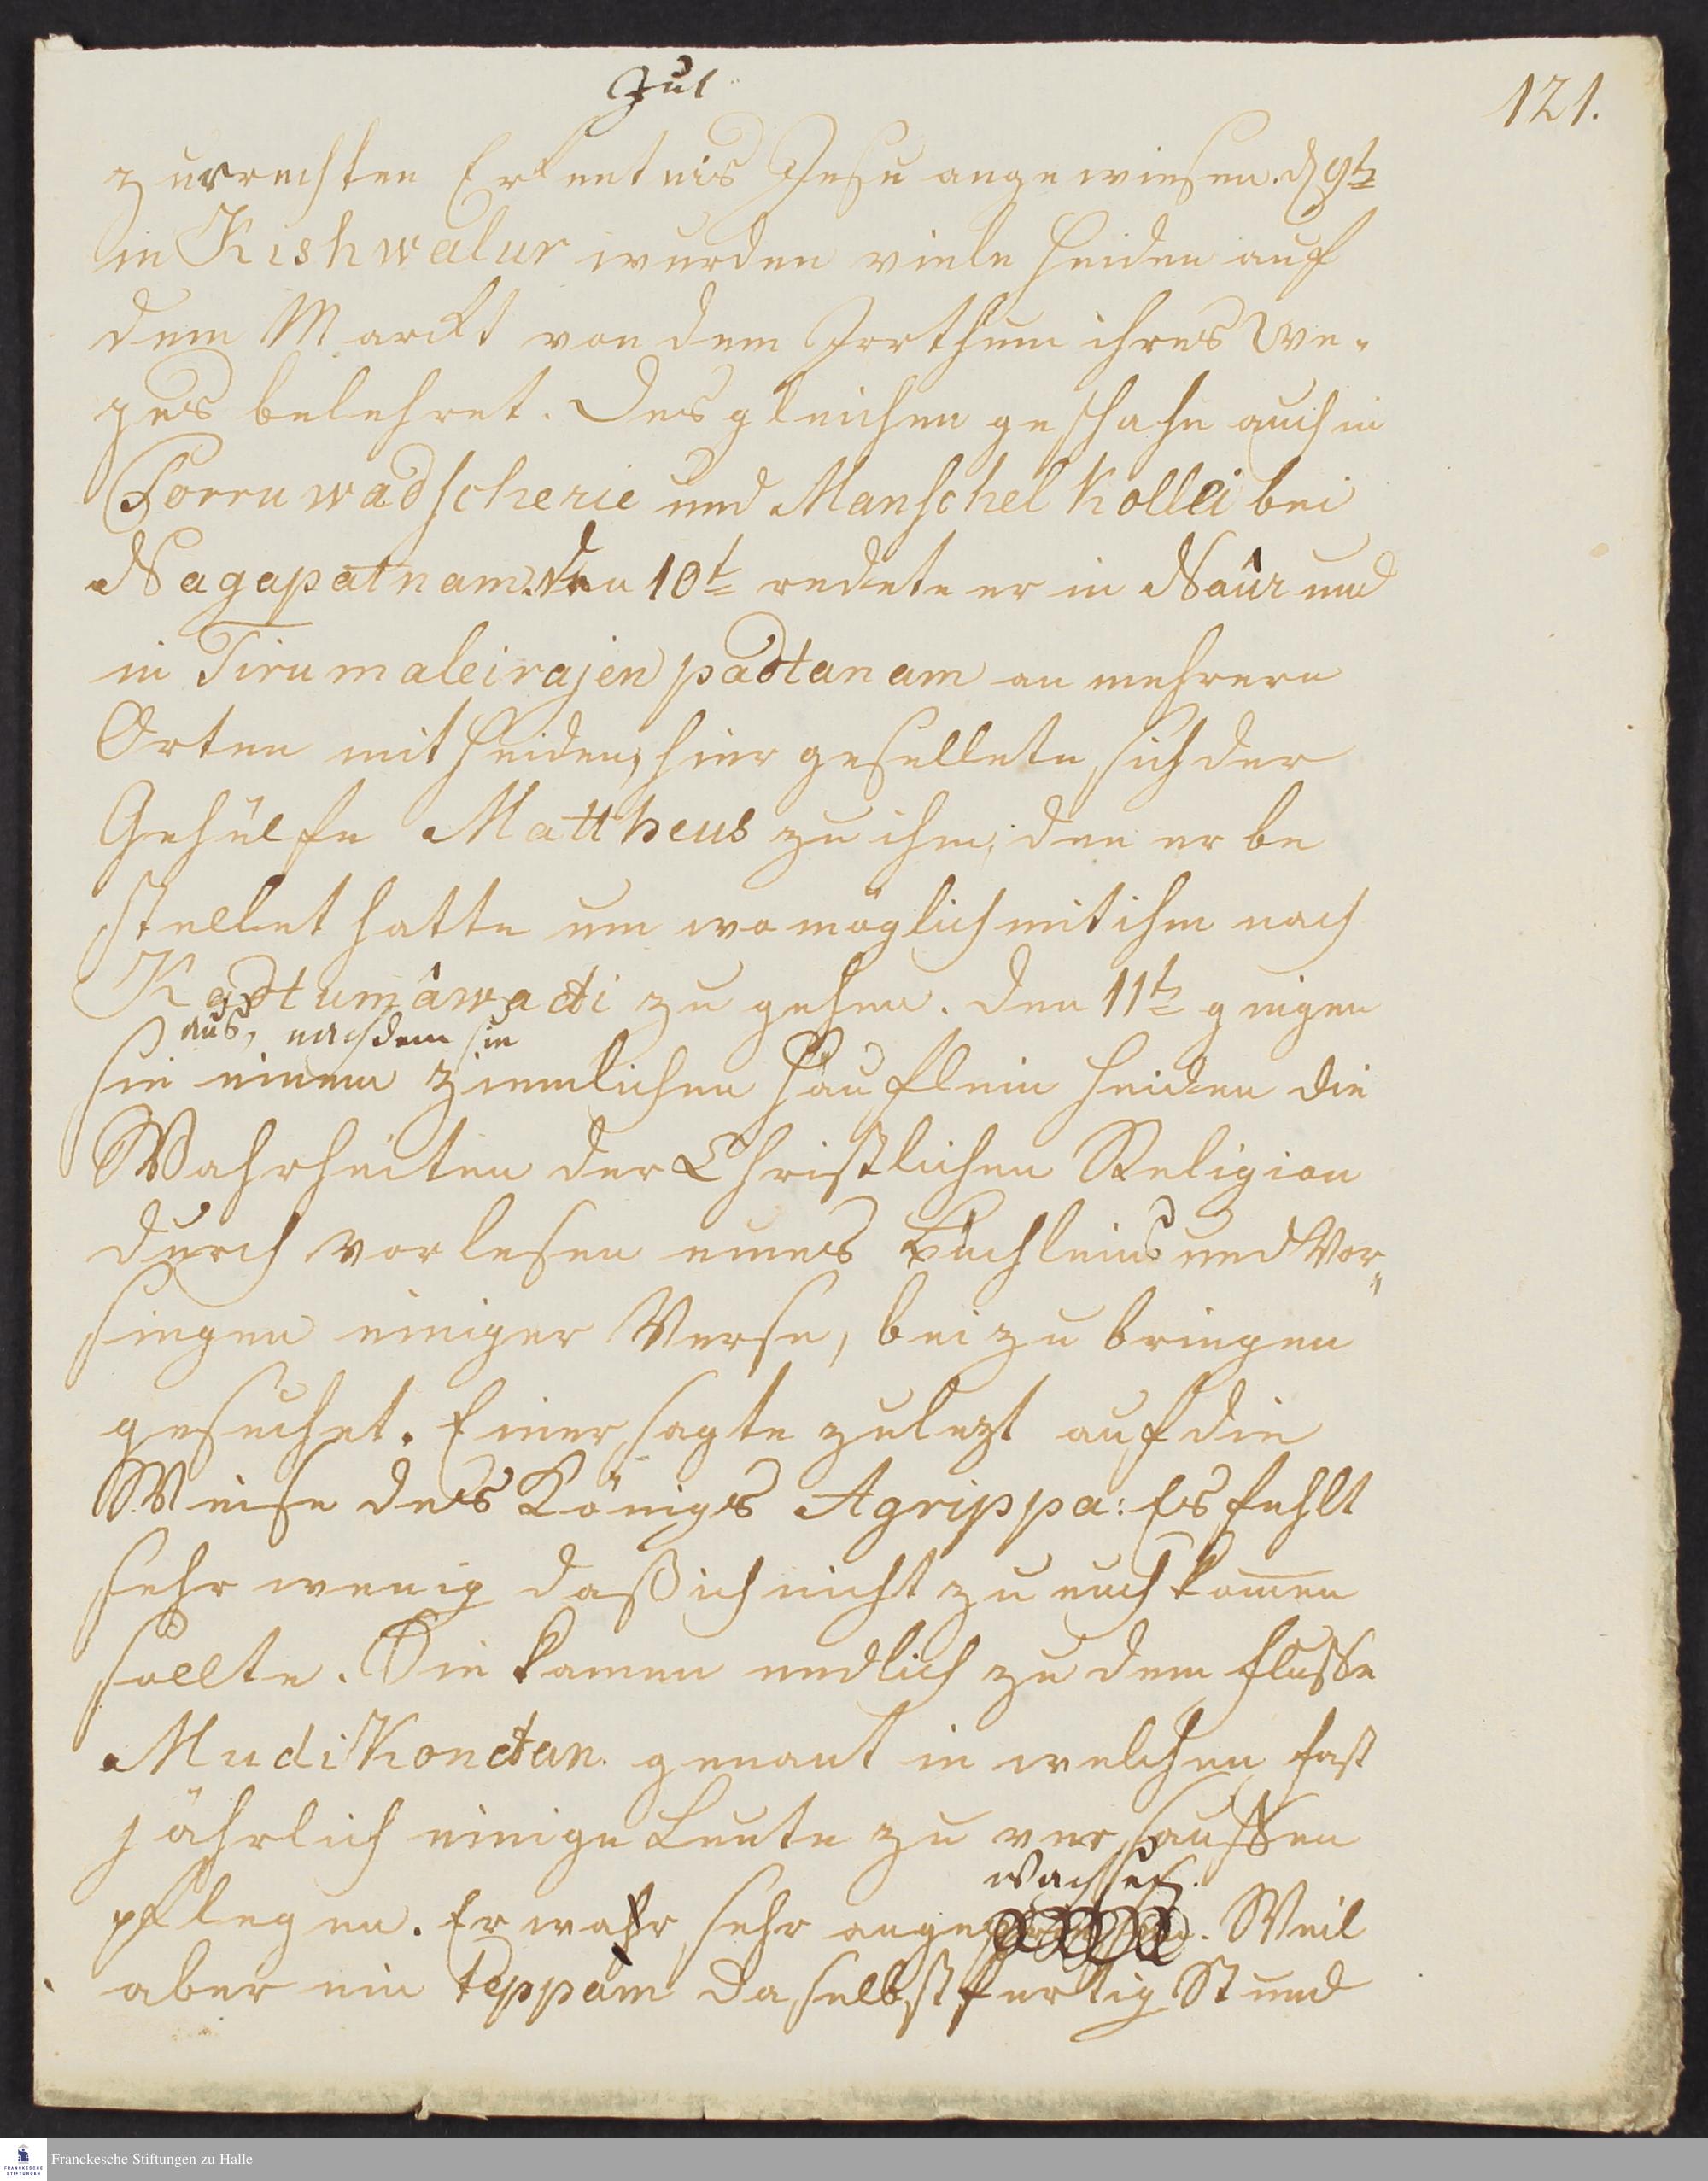 Jul
121.
zur rechten Erkentnis Jesu angewiesen. d 9t
in Kishwalur wurden viele Heiden auf
dem Marckt von dem Irrthum ihres We-
ges belehret. Desgleichen geschahe auch in
Porruwadscherie und Manschelkollei bei
Nagapatnam. Den 10t redete er in Naûr und
in Tirumaleirajenpadtanam an mehrern
Orten mit Heiden, hier gesellete sich der
Gehülfe Mattheus zu ihm, den er be
stellet hatte um wo möglich mit ihm nach
Kadtumâwadi zu gehen. Den 11t giengen
aus, nachdem sie
sie einem ziemlichen Häuflein Heiden die
Wahrheiten der Christlichen Religion
durch vorlesen eines Büchleins und Vor-
singen einiger Verse, beizubringen
gesuchet. Einer sagte zulezt auf die
Weise des Königs Agrippa: Es fehlt
sehr wenig daß ich nicht zu euch kom̄en
sollte. Sie kamen endlich zu dem Flusse
Mudikondan genant in welchen fast
jährlich einige Leute zu versauffen
wachsen.
pflegen. Er wahr sehr ange . Weil
aber ein Teppam daselbst fertig Stund
Franckesche Stiftungen zu Halle